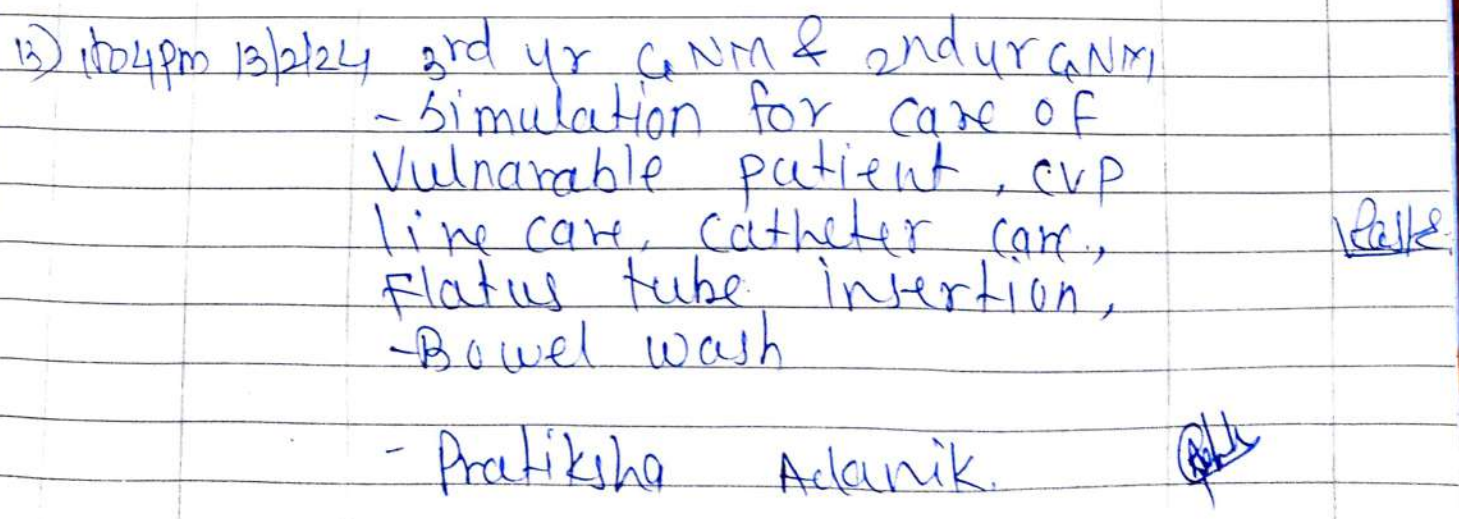 13) 1to4pm 13/2/24 3rd yr GNM & 2nd yr GNM
- Simulation for care of
Vulnarable patient, CVP
line care, catheter care,
Flatus tube insertion,
- Bowel wash
- Pratiksha Adanik.